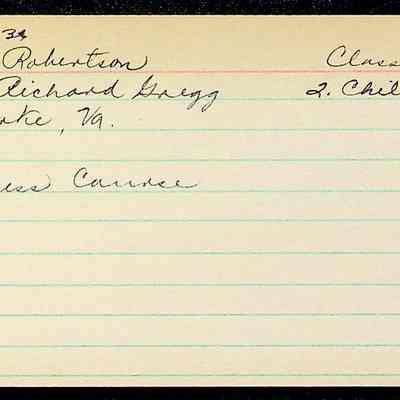 34
Robertson Class
Richard Gregg 2. Chil
oke, Va.
ess Course